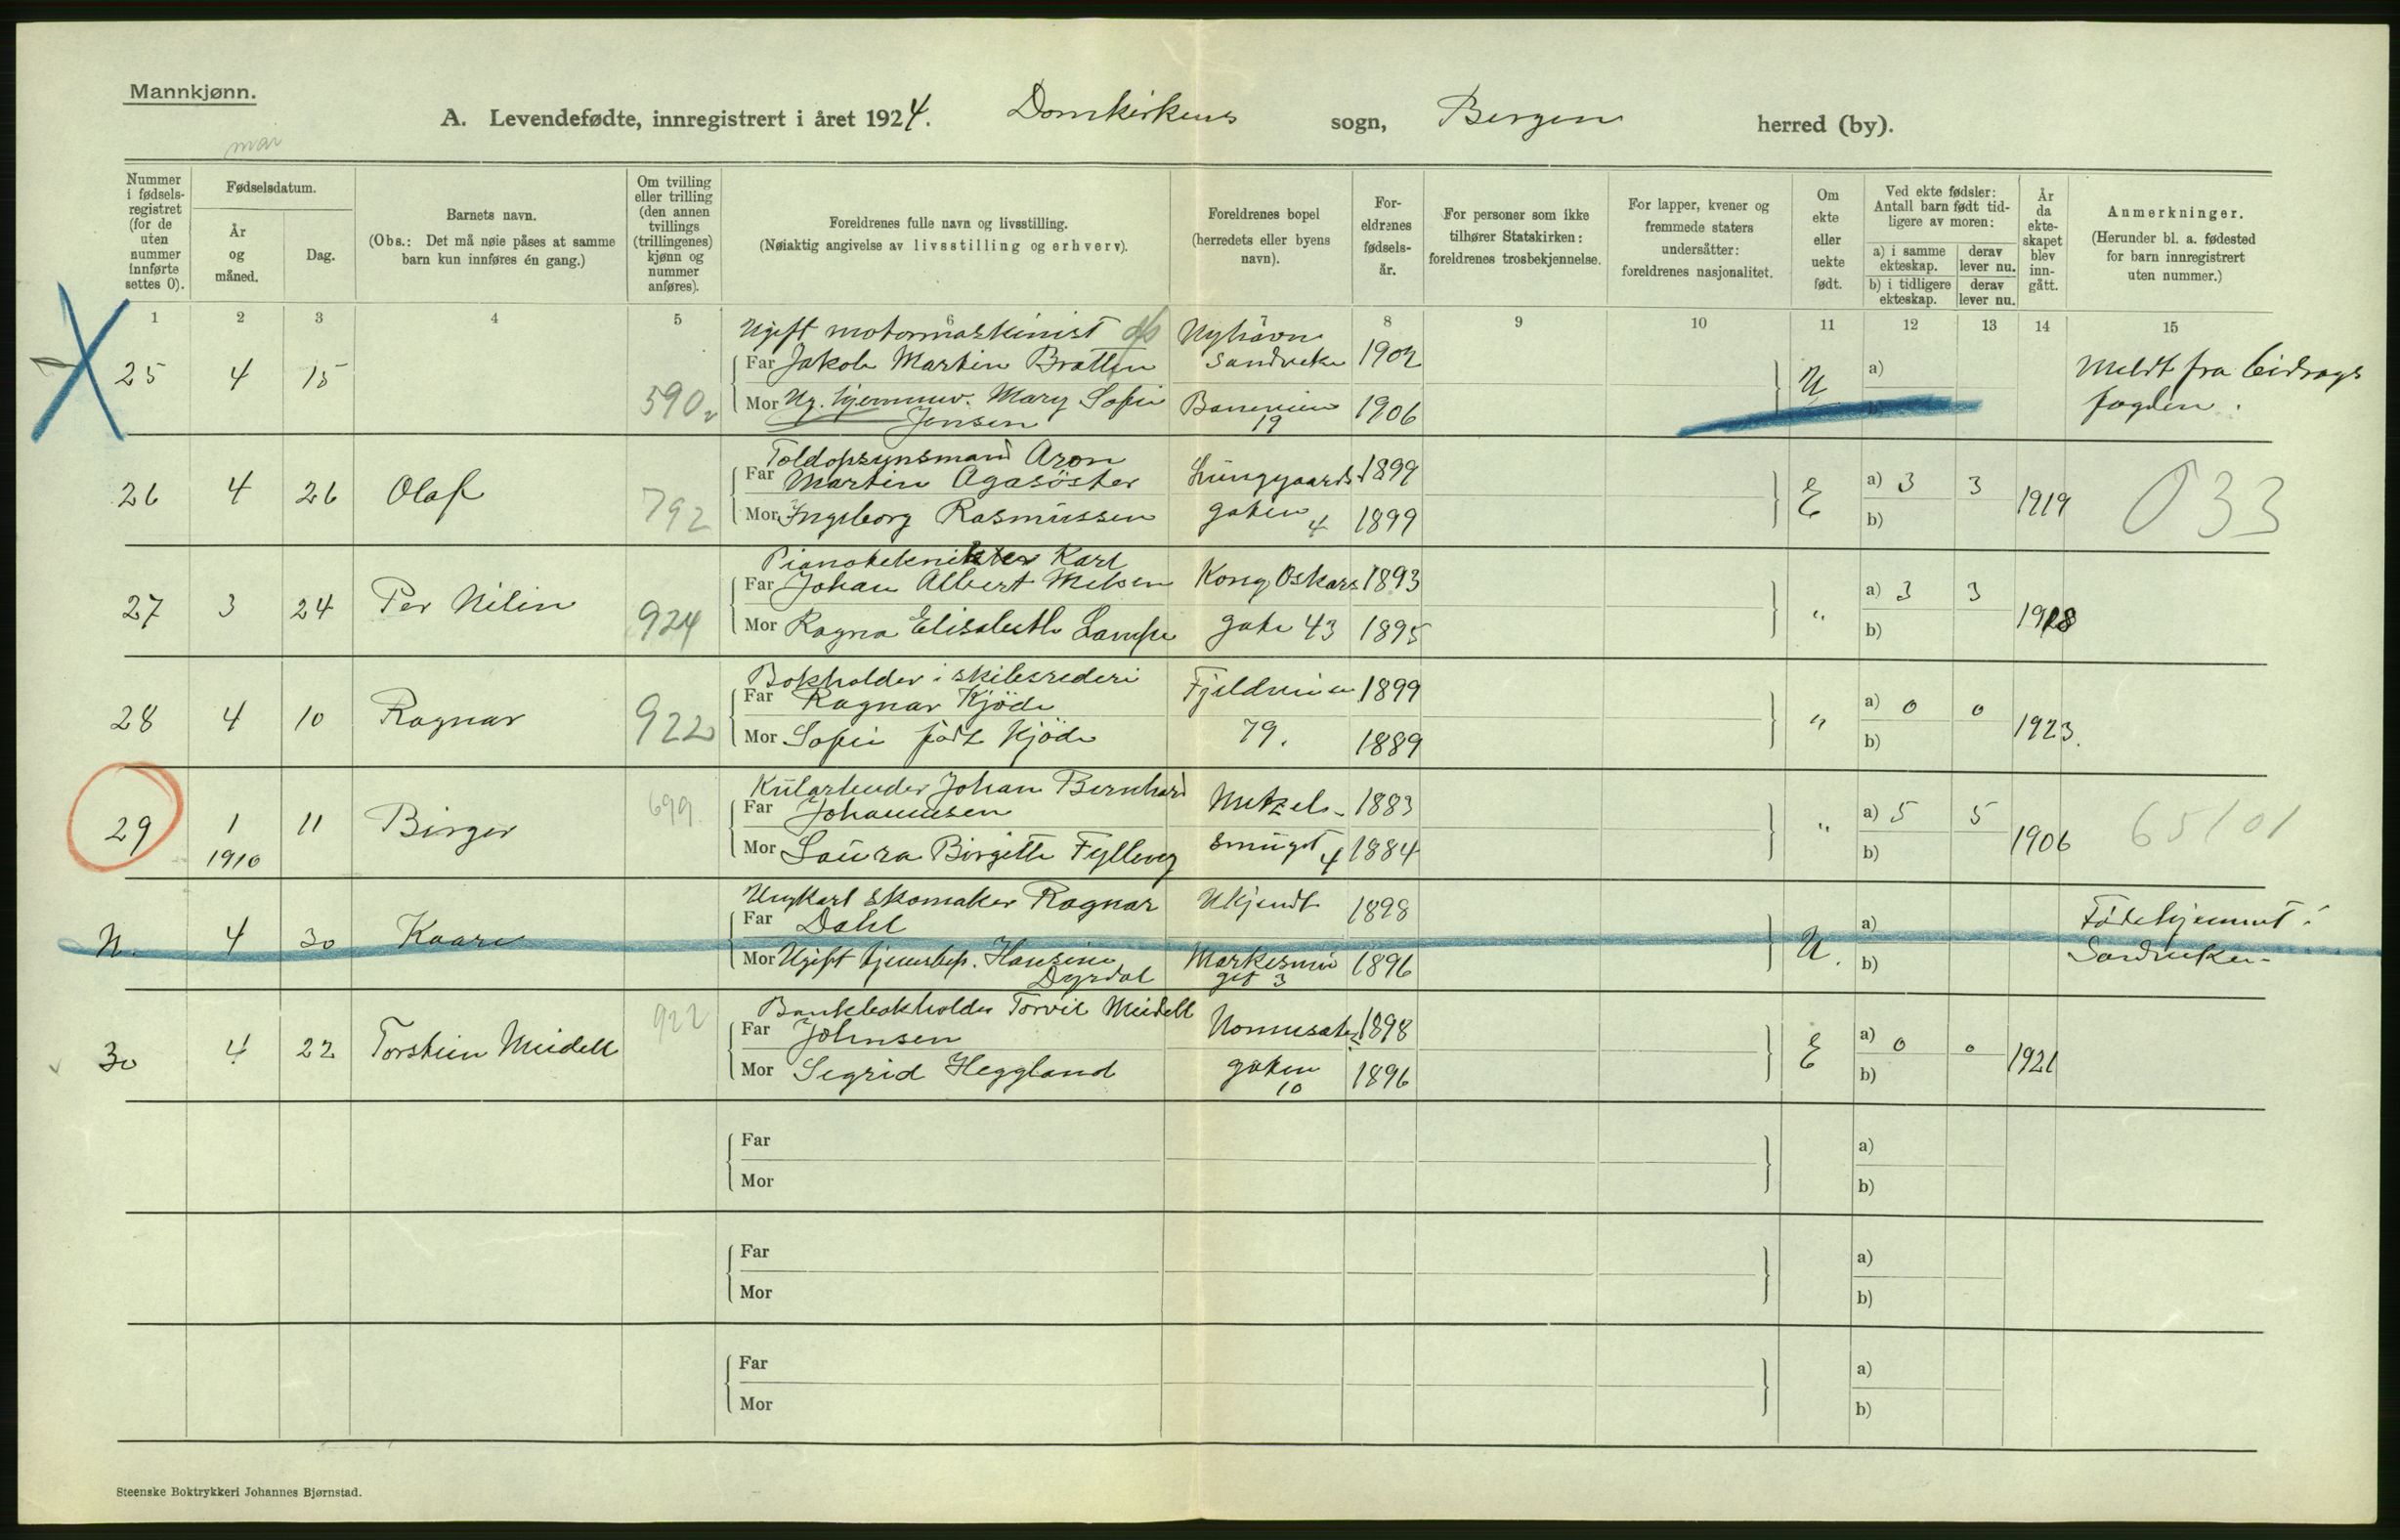 Mannkjønn.
A. Levendefødte, innregistrert i året 1924. Domkirkens sogn, Bergen herred (by).
mar
Nummer i fødsels-registret (for de uten nummer innførte settes 0).
Fødselsdatum.
År og måned.
Dag.
Barnets navn.
(Obs.: Det må nøie påses at samme barn kun innføres én gang.)
Om tvilling eller trilling (den annen tvillings (trillingenes) kjønn og nummer anføres).
Foreldrenes fulle navn og livsstilling.
(Nøiaktig angivelse av livsstilling og erhverv).
Foreldrenes bopel (herredets eller byens navn).
For-eldrenes fødsels-år.
For personer som ikke tilhører Statskirken: foreldrenes trosbekjennelse.
For lapper, kvener og fremmede staters undersåtter: foreldrenes nasjonalitet.
Om ekte eller uekte født.
Ved ekte fødsler: Antall barn født tid-ligere av moren:
a) i samme ekteskap.
derav lever nu.
b) i tidligere ekteskap.
derav lever nu.
År da ekte-skapet blev inn-gått.
Anmerkninger.
(Herunder bl. a. fødested for barn innregistrert uten nummer.)
1 2 3 4 5 6 7 8 9 10 11 12 13 14 15
Ugift motormaskinist Nyhavn
25 4 15 Far Jakob Martin Bratten Sandviken 1902 U a) Meldt fra bidrags
590 Mor Ug. hjemmev. Mary Sofie 1906 b) fogden.
Jensen 19
Toldopsynsmand Aron
26 4 26 Olaf 792 Far Martin Agasöster Lunggaards 1899 E a) 3 3 1919 033
Mor Ingeborg Rasmussen gaten 4 1899 b)
Pianotekniker Karl
27 3 24 Per Nilin 924 Far Johan Albert Nielsen Kong Oskars 1893 " a) 3 3 1918
Mor Ragna Elisabeth Lampe gate 43 1895 b)
Bokholder i skibsrederi
28 4 10 Ragnar 922 Far Ragnar Kjöde Fjeldveien 1899 " a) 0 0 1923.
Mor Sofie født Kjöde 79. 1889 b)
Kularbeider Johan Bernhard
29 1 11 Birger 699 Far Johannesen Netzel- 1883 " a) 5 5 1906 65101
1910 Mor Laura Birgitte Fylling smuget 4 1884 b)
Ungkarl skomaker Ragnar Ukjendt 1898
N. 4 30 Kaare Far Dahl U. a) Fødehjemmet i
Mor Ugift tjenstep. Hansine Markesmu 1896 b) Sandviken-
Dyrdal get 3
Bankbokholder Torvil Meidell
30 4 22 Torstein Meidell 922 Far Johnsen Nonneseter 1898 E a) 0 0 1921
Mor Sigrid Heggland gaten 10 1896 b)
Far a)
Mor b)
Far a)
Mor b)
Far a)
Mor b)
Steenske Boktrykkeri Johannes Bjørnstad.